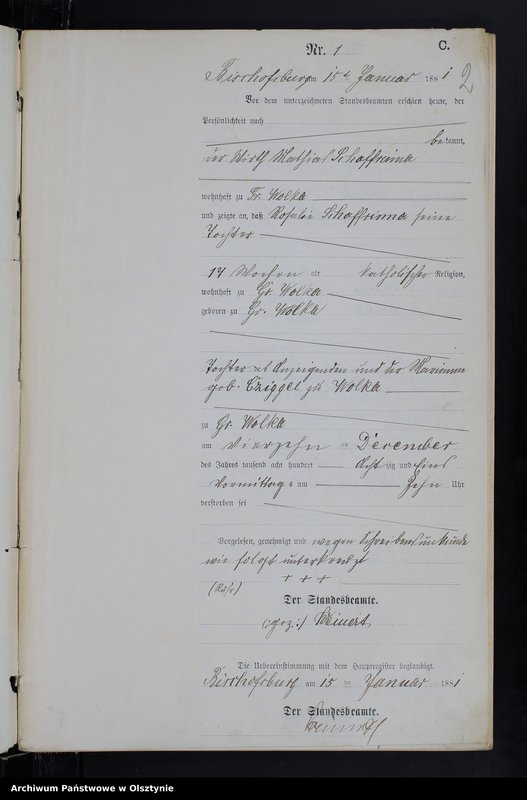 Nr. 1
C.
2
Bischofsburg am 15 t Januar 1881
Vor dem unterzeichneten Standesbeamten erschien heute, der
Persönlichkeit nach
bekannt,
der Wirth Mathias Schaffrinna
wohnhaft zu Gr. Wolka
und zeigte an, daß Rosalie Schaffrinna seine
Tochter
14 Wochen alt katholischer Religion,
wohnhaft zu Gr. Wolka
geboren zu Gr. Wolka
Tochter des Anzeigenden und der Marianna
geb. Cziggel zu Wolka
zu Gr. Wolka
am vierzehn ten December
des Jahres tausend acht hundert Acht zig und Eins
Vormittag s um Zehn Uhr
verstorben sei
Vorgelesen, genehmigt und wegen Schreibensunkunde
wie folgt unterkreuzt
+ + +
Der Standesbeamte.
(:gez:)
Die Uebereinstimmung mit dem Hauptregister beglaubigt.
Bischofsburg am 15 ten Januar 1881
Der Standesbeamte.
Archiwum Państwowe w Olsztynie